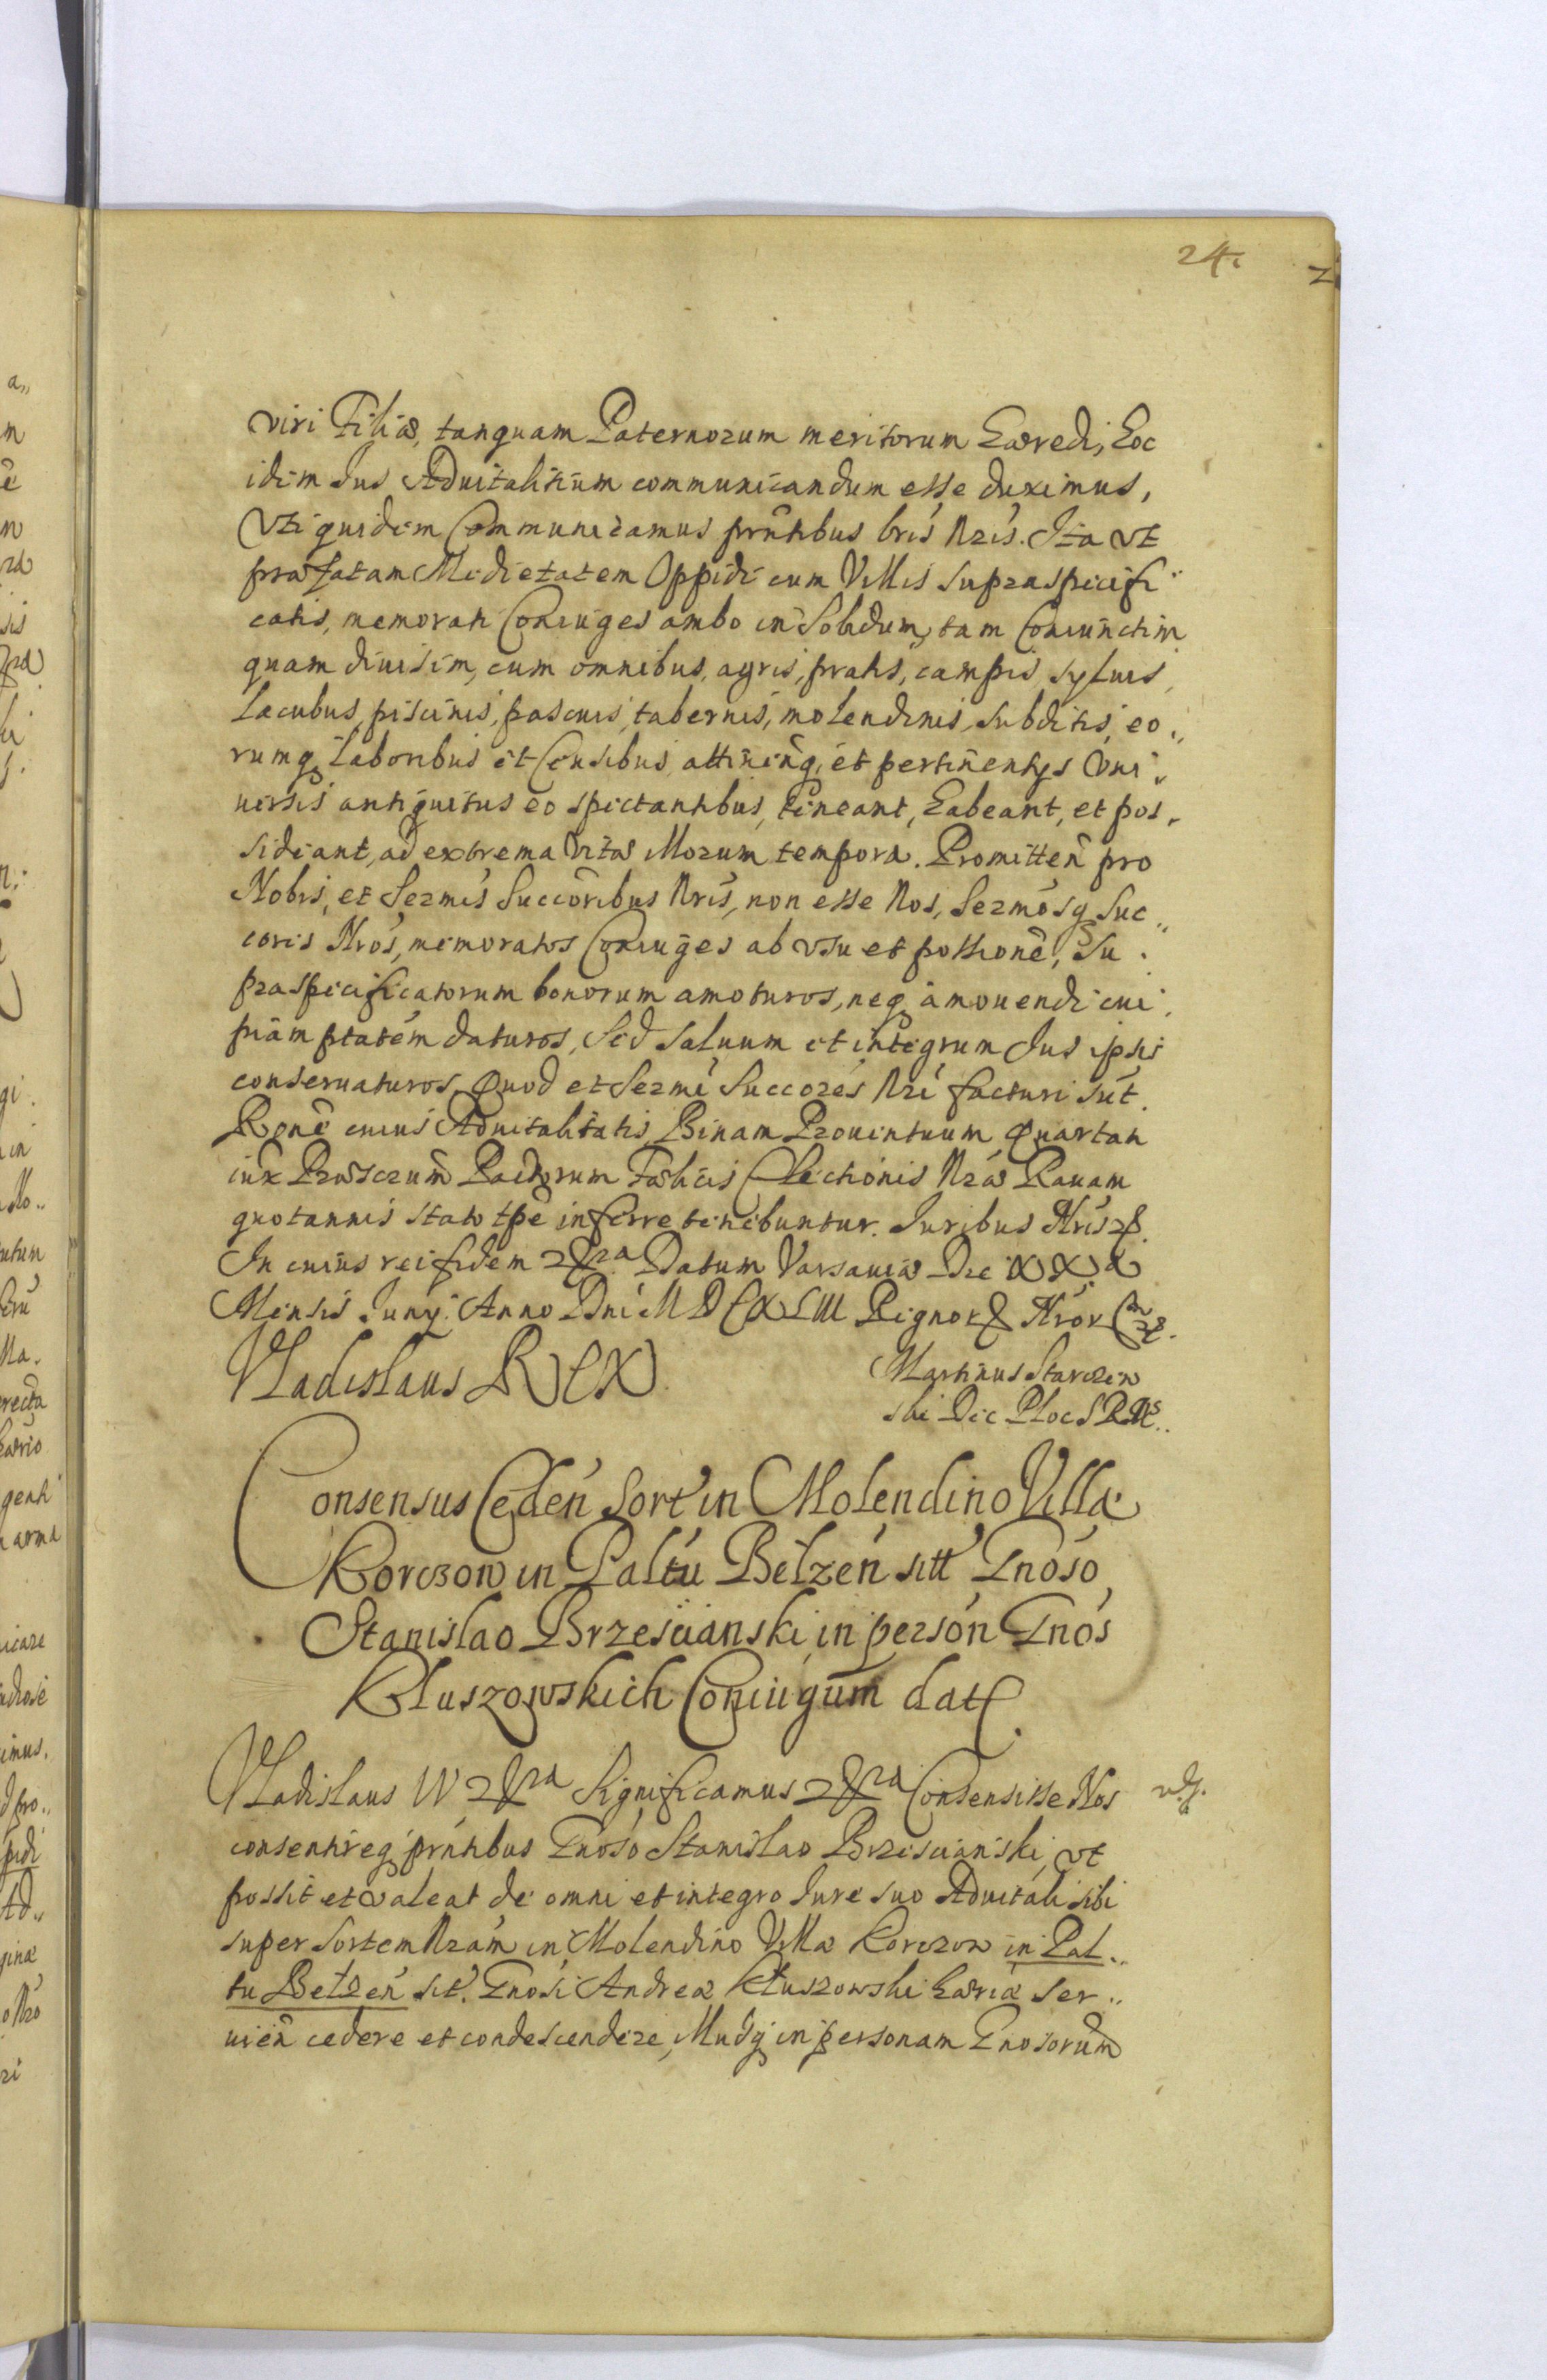 24.
viri Filiæ, tanquam Paternorum meritorum Hæredi, hoc
idem Jus Aduitalitium communicandum esse duximus,
Vti quidem Communicamus prñtibus lrís Nrís. Ita vt
præfatam Medietatem Oppidi cum Villis supraspecifi„
catis, memorati Coniuges ambo in Solidum, tam Coniunctim
quam diuisim, cum omnibus, agris, pratis, campis, syluis,
Lacubus, piscinis, pascuis, tabernis, molendinis, subditis, eo„
rumq, Laboribus et Censibus, attinenq, et pertinentys Vni„
uersis antiquitus eo spectantibus, teneant, habeant, et pos„
sideant, ad extrema vitæ Illorum tempora. Promitteñ pro
Nobis, et Sermis Succoribus Nrís, non esse Nos, Sermosq Suc„
cores Nros, memoratos Coniuges ab vsu et possione, Su„
praspecificatorum bonorum amoturos, neq amouendi cui„
piam ptatem daturos, Sed saluum et integrum Jus ipsis
conseruaturos, Quod et Sermi Succores Nri facturi sut.
Rone cuius Aduitalitatis Binam Prouentuum Quartan
iux Præscrum Pactorum Fælicis Electionis Nræ Rauam
quotannis stato tpe inferre tenebuntur. Juribus Nris &.
In cuius rei fidem &ra Datum Varsauiæ Die XXX
Mensis Juny. Anno Dni MDCXLIII Regnor& Nror &.
Vladislaus REX
Martinus Starczew
ski Dec Ploc S R Ms..
Consensus Cedeń Sort in Molendino Villæ
Korczow in Paltu Belzeń sitt Gnoso
Stanislao Brzescianski in person Gnos
Kluszowskich Coniugum dat.
Vladislaus IV &ra Significamus &ra Consensisse Nos
consentireq prńtibus Gnoso Stanislao Brzescianski, vt
possit et valeat de omni et integro Jure suo Aduitali sibi
super Sortem Nram in Molendino Villæ Korczow in Pal„
tu Belzeń sit. Gnosi Andreæ Kluszowski hæria ser„
uień cedere et condescendere, Illudq in personam Gnosorum